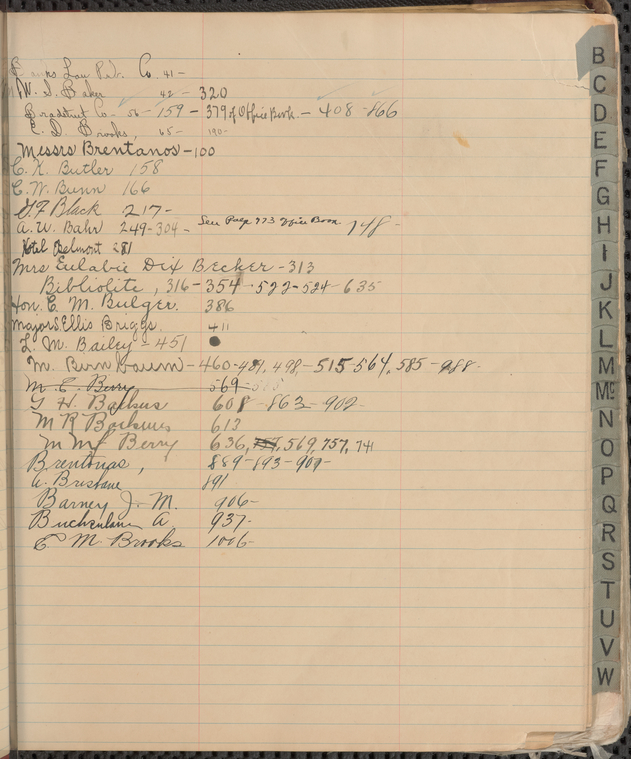 Banks Law Pub. Co. 41-
W. S. Baker 42- 320
Bradstreet Co - 56 - 159 - 379 of Office Book - 408 - 466
E. D. Brooks, 65- 190-
Messrs Brentanos - 100
C. K. Butler 158
C. W. Bunn 166
Black 217-
A. W. Bahr 249-304- See Page 773 Office Book 748-
Hotel Belmont 281
Mrs Eulabie Dix Becker - 313
Bibliolite, 316-354-522-524-635
Hon. C. M. Bulger. 386
Major S. Ellis Briggs. 411
L. M. Bailey - 451
M. Birnbaum - 460-481, 498, -515-564, 585-988-
M. E. Berry 569-575
G H. Backus 608-863-902-
M R Backus 613
M Berry 636, 569, 757, 741
Brentanos, 889-893-907-
A. Brisbane 891
Barney J. M. 906-
A. 937-
E M Brooks. 1006-
B
C
D
E
F
G
H
I
J
K
L
M
Mc
N
O
P
Q
R
S
T
U
V
W